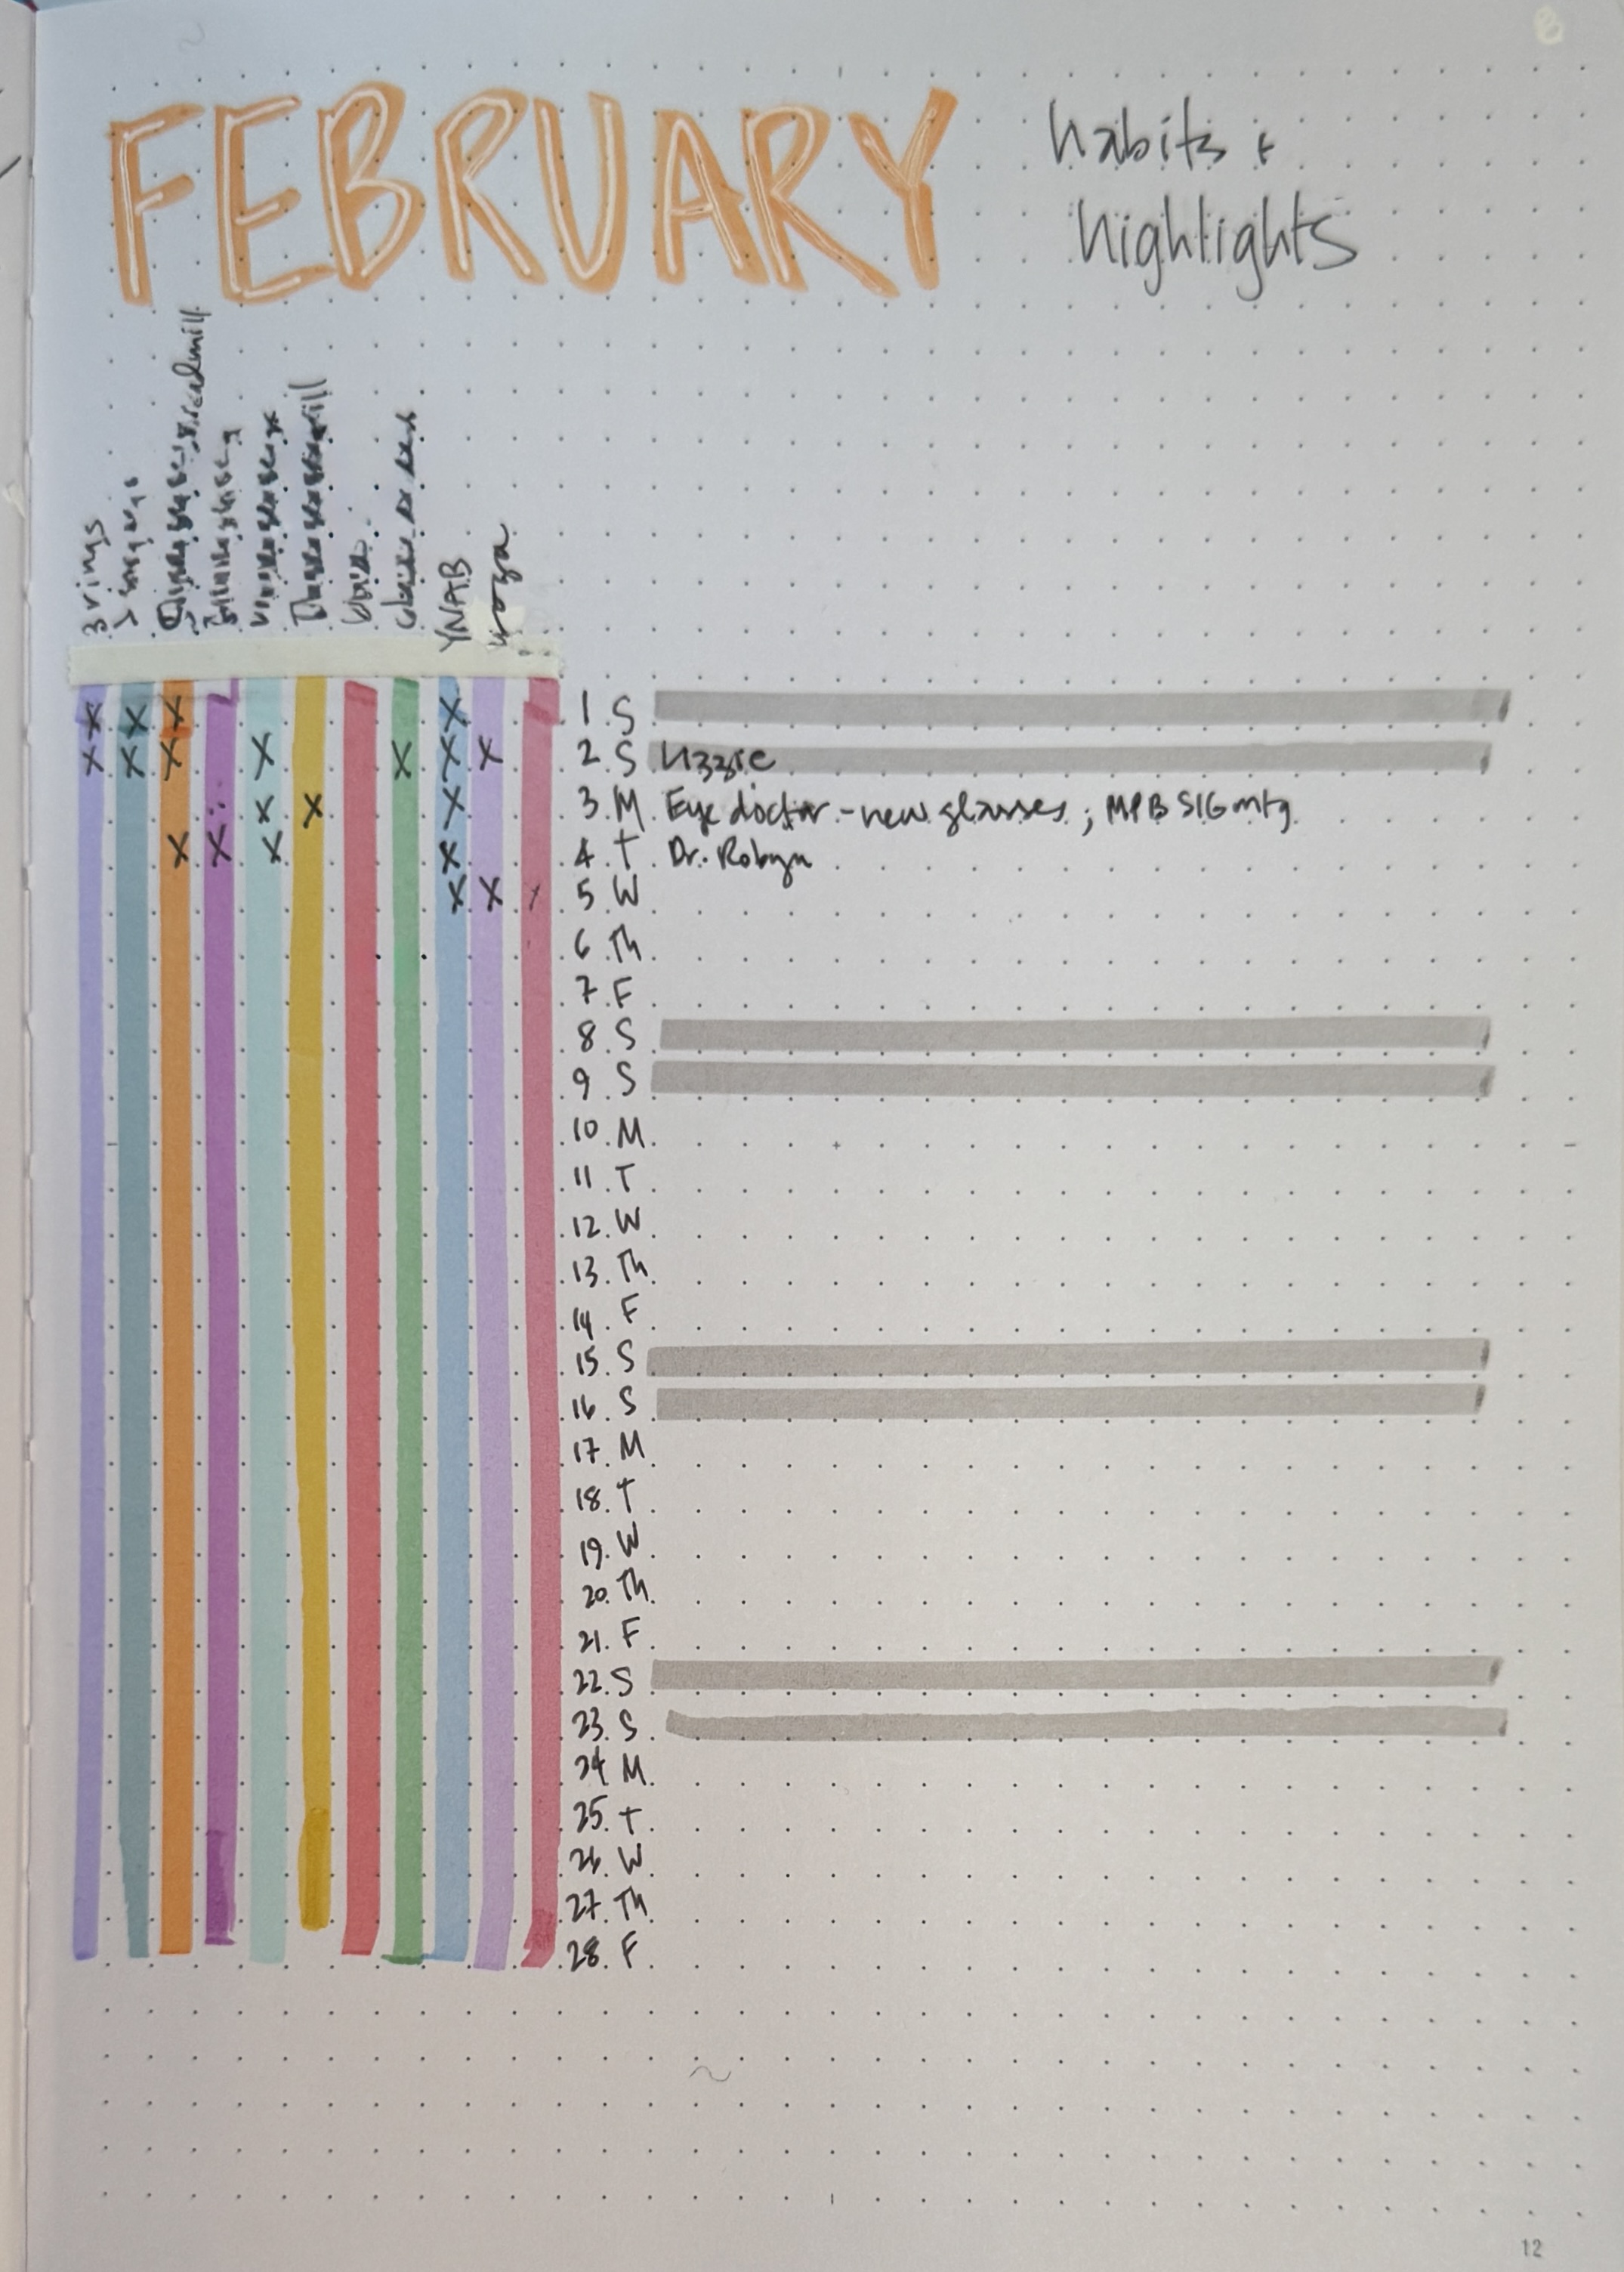 FEBRUARY
habits +
highlights
3 rings
YNAB
yoga
X X X X 1 S
X X X X X X X 2 S Lizzie
X X X 3 M Eye doctor - new glasses; MPB SIG mtg
X X X X 4 T Dr. Robyn
X X 5 W
6 Th
7 F
8 S
9 S
10 M
11 T
12 W
13 Th
14 F
15 S
16 S
17 M
18 T
19 W
20 Th
21 F
22 S
23 S
24 M
25 T
26 W
27 Th
28 F
12